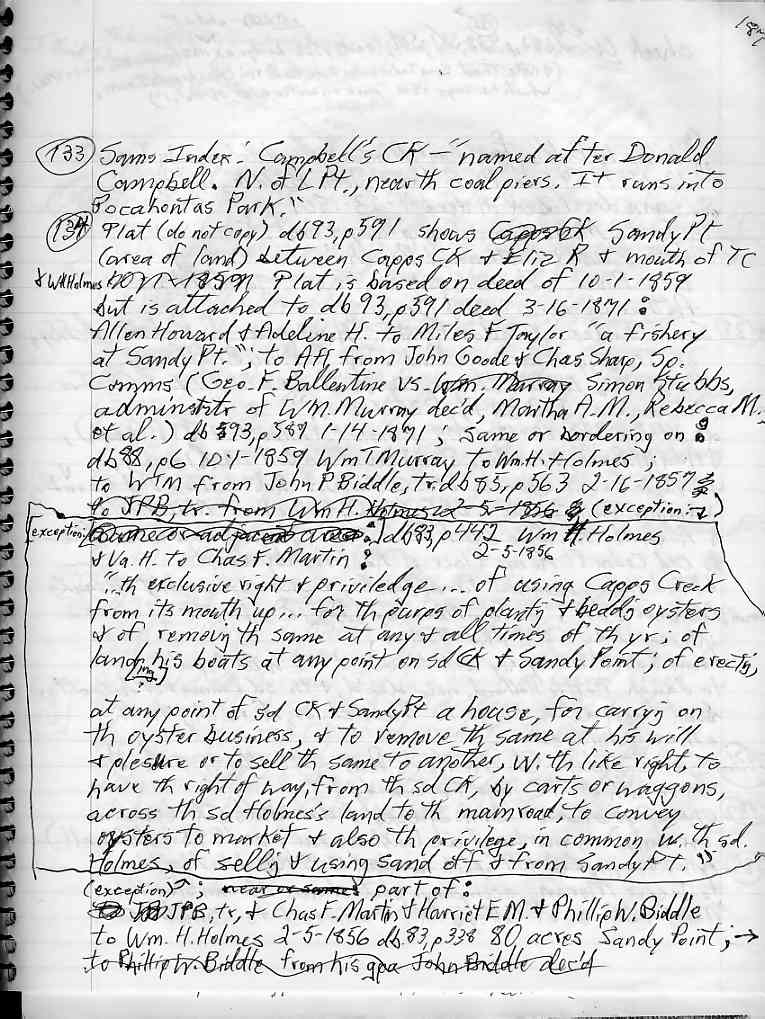 187
133 Sams Index: Campbell's CK - "named after Donald
Campbell. N. of L Pt., near th coal piers. It runs into
Pocahontas Park."
134 Plat (do not copy) db93,p591 shows Capps CK Sandy Pt
(area of land) between Capps CK & Eliz R & mouth of TC
& WHHolmes 1859 Plat is based on deed of 10-1-1859
but is attached to db93,p591 deed 3-16-1871:
Allen Howard & Adeline H. to Miles F Taylor "a fishery
at Sandy Pt."; to AH from John Goode & Chas Sharp, Sp.
Comms (Geo. F. Ballentine vs. Wm. Murray Simon Stubbs,
adminstr of Wm. Murray dec'd, Martha A.M., Rebecca M.
et al.) db 93,p589 1-14-1871; same or bordering on:
db88,p6 10-1-1859 WmTMurray to Wm.H.Holmes;
to WTM from John P Biddle, tr. db85,p563 2-16-1857
to JPB, tr. from Wm H. Holmes 2-5-1856 (exception:→)
exception: Same or adjacent area: db83,p442 Wm H. Holmes
2-5-1856
& Va. H. to Chas F. Martin:
"..th exclusive right & priviledge... of using Capps Creek
from its mouth up... for th purps of plantg & beddg oysters
& of removg th same at any & all times of th yr; of
land[ing] his boats at any point on sd CK & Sandy Point; of erectg,
?
at any point of sd CK & Sandy Pt a house, for carryg on
th oyster business, & to remove th same at his will
& plesure or to sell th same to another, with like right, to
have th right of way, from th sd CK, by carts or waggons,
across th sd Holmes's land to th main road, to convey
oysters to market & also th privilege, in common w. th sd.
Holmes, of sellg & using sand off & from Sandy Pt."
(exception)^; near or same part of:
JPB, tr, & Chas F. Martin & Harriet E M. & Phillip W. Biddle
to Wm. H. Holmes 2-5-1856 db.83,p338 80 acres Sandy Point; →
to Phillip W. Biddle from his gpa John Biddle dec'd